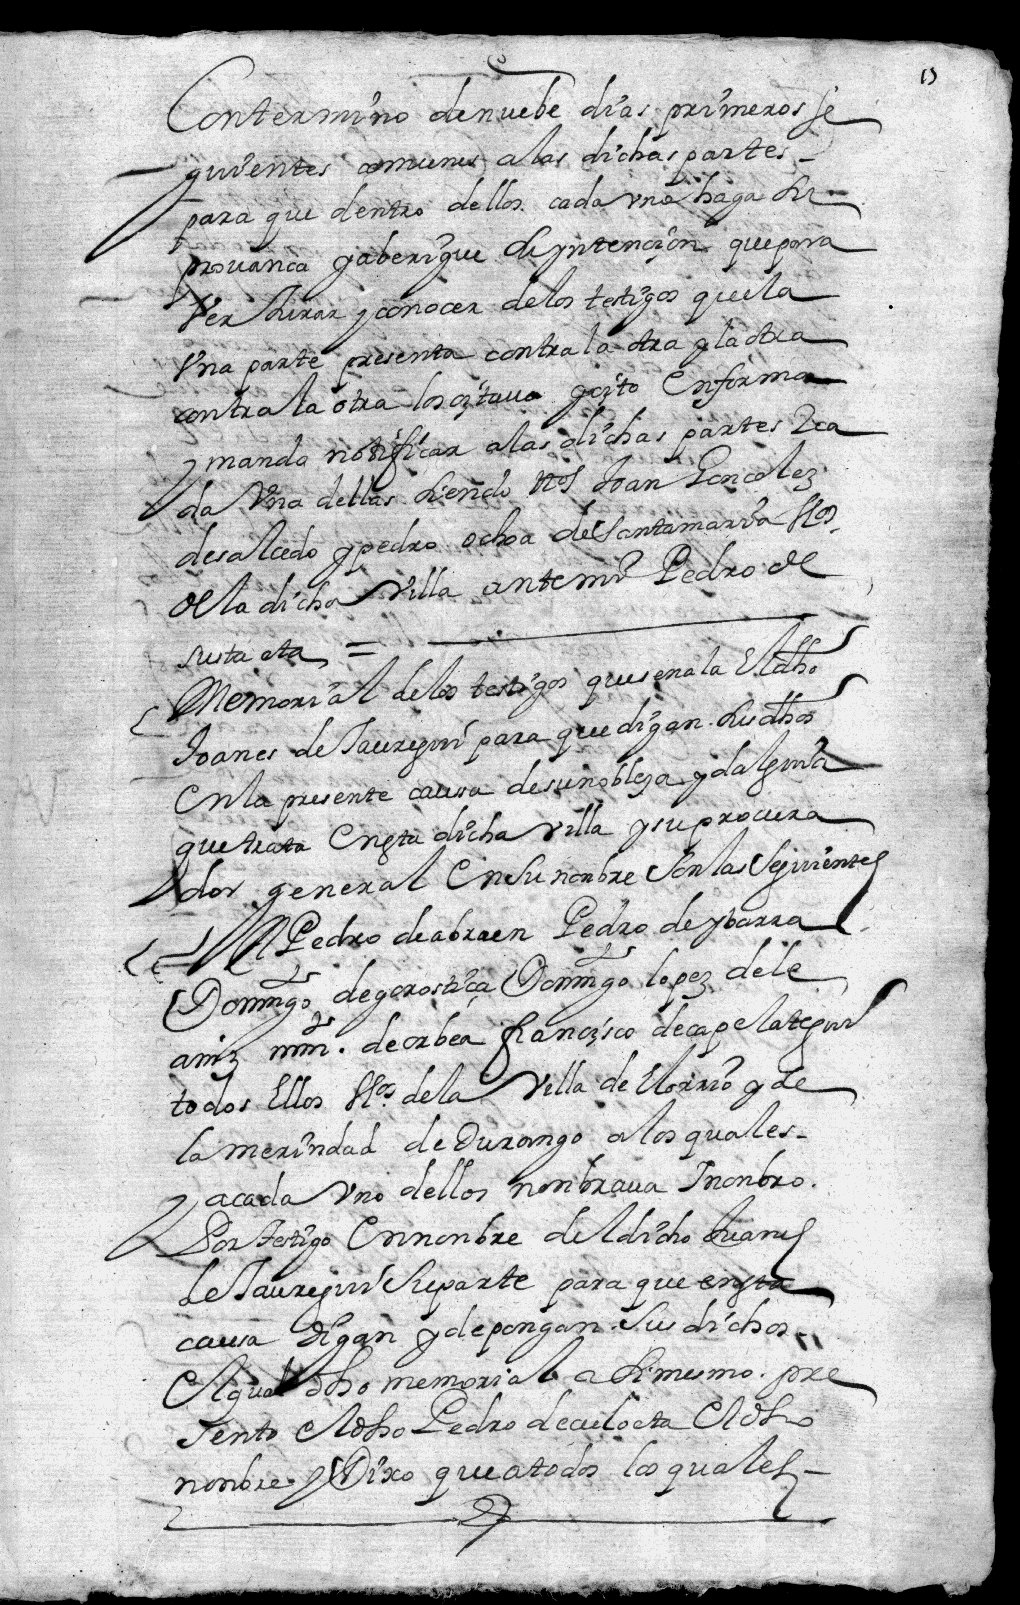 13
Con termino de nuebe dias primeros se
guientes comunes a las dichas partes
para que dentro dellos cada vna haga su
prouança y aberigue su yntençion que para
Ver Jurar y conocer de los testigos que la
Vna parte presenta contra la otra y la otra
contra la otra los çitaua y çito En forma
y mando notificar a las dichas partes E ca
da Vna dellas siendo tºs Joan Gonçalez
de salcedo y pedro ochoa de Santamaria Vºs
de la dicha Villa ante mi Pedro de
sustaeta =
Memorial de los testigos que senala El dho
Joanes de Jauregui para que digan sus dhos
En la presente causa de su nobleza ydalguia
que trata En esta dicha villa y su procura
dor general En su nonbre Son los Seguientes
Pedro de abraen Pedro de ybarra
Domingo de gorostiça Domingo lopez de le
aniz mrn. de orbea françisco de capelategui
todos Ellos Vºs de la Villa de Elorrio y de
la merindad de Durango a los quales
y a cada Vno dellos nonbraua E nonbro
Por testigo En nonbre del dicho Juanes
de Jauregui Su parte para que en esta
causa digan y depongan Sus dichos
El qual dho memorial a si mesmo pre
sento El dho Pedro de culoeta El dho
nonbre y Dixo que a todos los quales